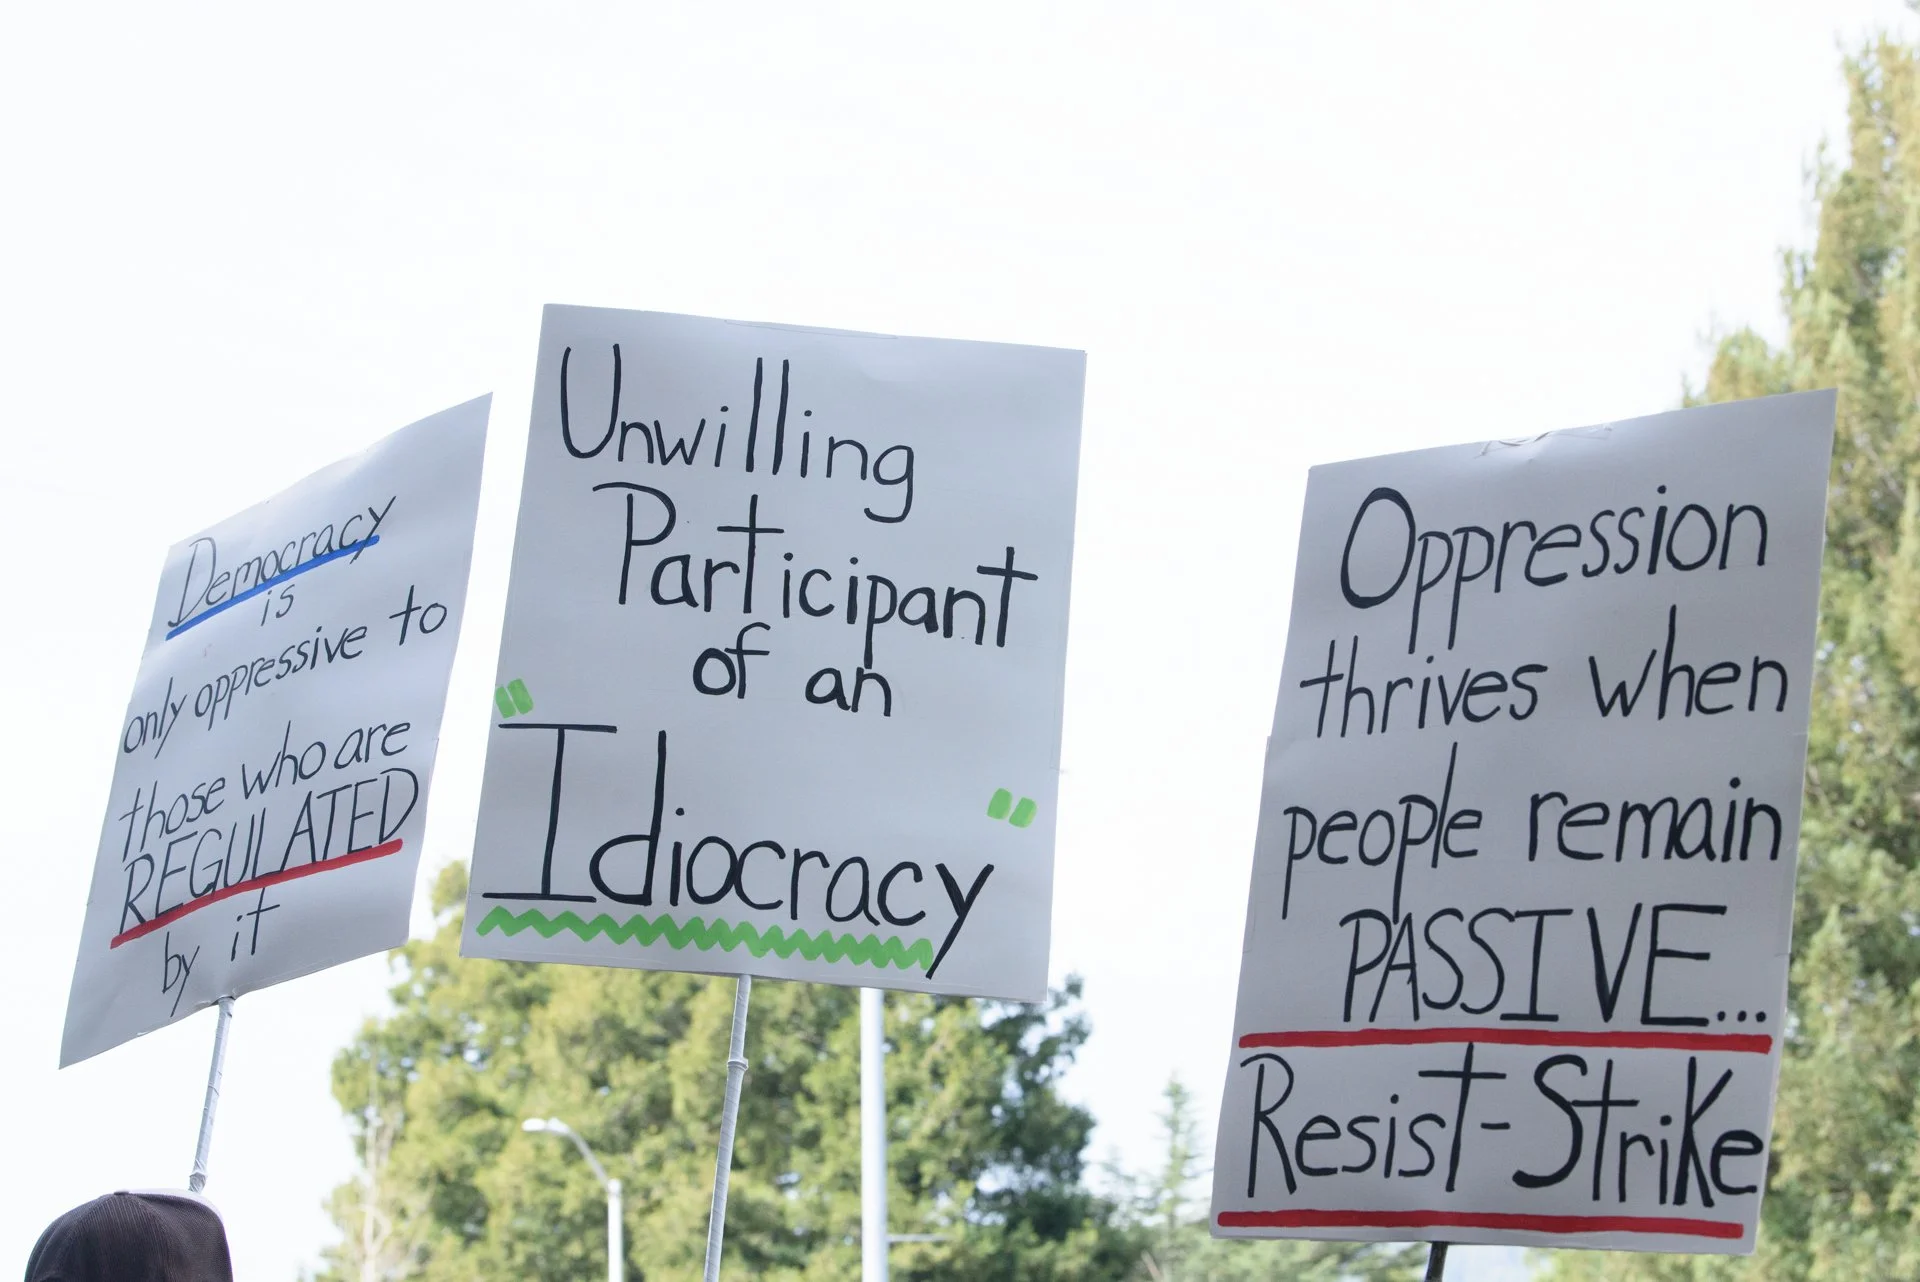 Democracy
is
only oppressive to
those who are
REGULATED
by it
Unwilling
Participant
of an
"Idiocracy"
Oppression
thrives when
people remain
PASSIVE...
Resist-Strike